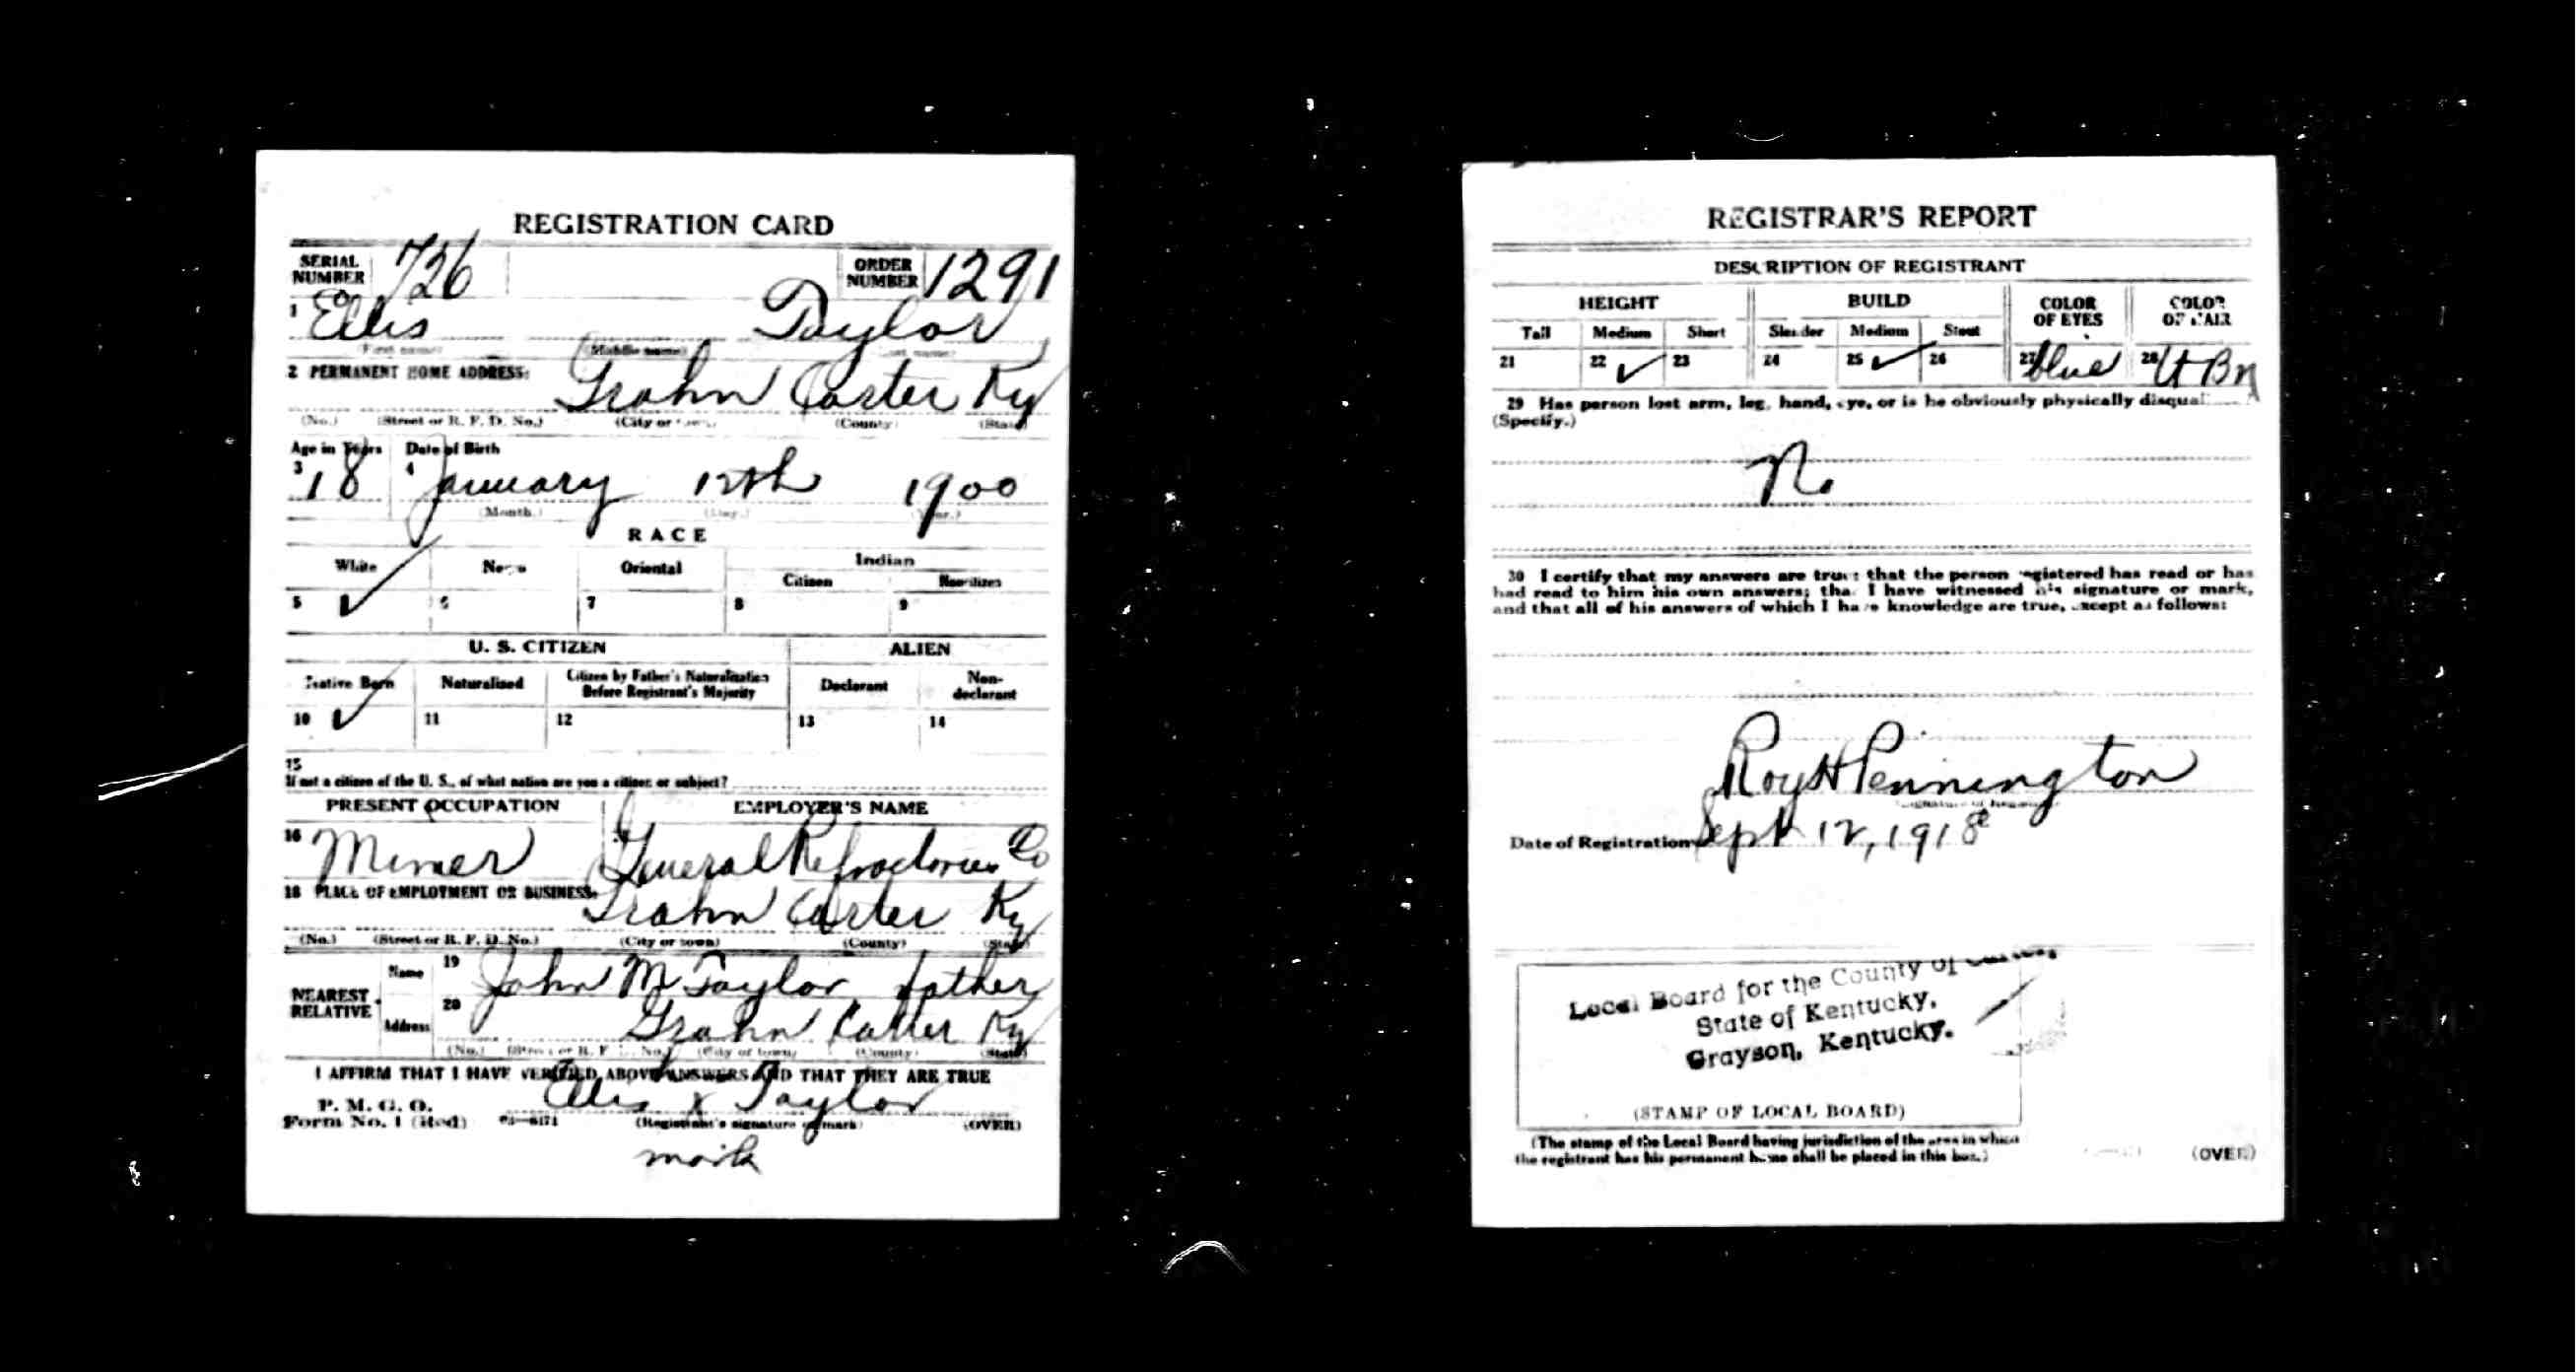 REGISTRATION CARD
SERIAL NUMBER 726 ORDER NUMBER 1291
1 Ellis Taylor
(First name) (Middle name) (Last name)
2 PERMANENT HOME ADDRESS: Grahn Carter Ky
(No.) (Street or R. F. D. No.) (City or town) (County) (State)
Age in Years Date of Birth
3 18 4 January 12th 1900
(Month.) (Day.) (Year.)
RACE
White Negro Oriental Indian
Citizen Noncitizen
5 ✓ 6 7 8 9
U. S. CITIZEN ALIEN
Native Born Naturalized Citizen by Father's Naturalization Before Registrant's Majority Declarant Non-declarant
10 ✓ 11 12 13 14
15
If not a citizen of the U. S., of what nation are you a citizen or subject?
PRESENT OCCUPATION EMPLOYER'S NAME
16 Miner General Refractories Co
18 PLACE OF EMPLOYMENT OR BUSINESS: Grahn Carter Ky
(No.) (Street or R. F. D. No.) (City or town) (County) (State)
NEAREST RELATIVE Name 19 John M Taylor father
Address 20 Grahn Carter Ky
(No.) (Street or R. F. D. No.) (City or town) (County) (State)
I AFFIRM THAT I HAVE VERIFIED ABOVE ANSWERS AND THAT THEY ARE TRUE
P. M. G. O.
Form No. 1 (Red) Ellis x Taylor
(Registrant's signature or mark) (OVER)
mark
REGISTRAR'S REPORT
DESCRIPTION OF REGISTRANT
HEIGHT BUILD COLOR OF EYES COLOR OF HAIR
Tall Medium Short Slender Medium Stout
21 22 ✓ 23 24 25 ✓ 26 27 blue 28 Lt Bn
29 Has person lost arm, leg, hand, eye, or is he obviously physically disqual
(Specify.)
No
30 I certify that my answers are true; that the person registered has read or has
had read to him his own answers; that I have witnessed his signature or mark,
and that all of his answers of which I have knowledge are true, except as follows:
Roy H Pennington
(Signature of Registrar)
Date of Registration Sept 12, 1918
Local Board for the County of Carter,
State of Kentucky,
Grayson, Kentucky.
(STAMP OF LOCAL BOARD)
(The stamp of the Local Board having jurisdiction of the area in which
the registrant has his permanent home shall be placed in this box.)
(OVER)